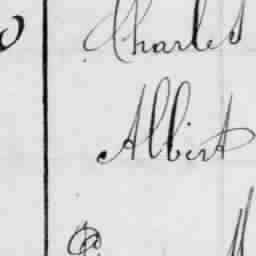 Charles
Albert